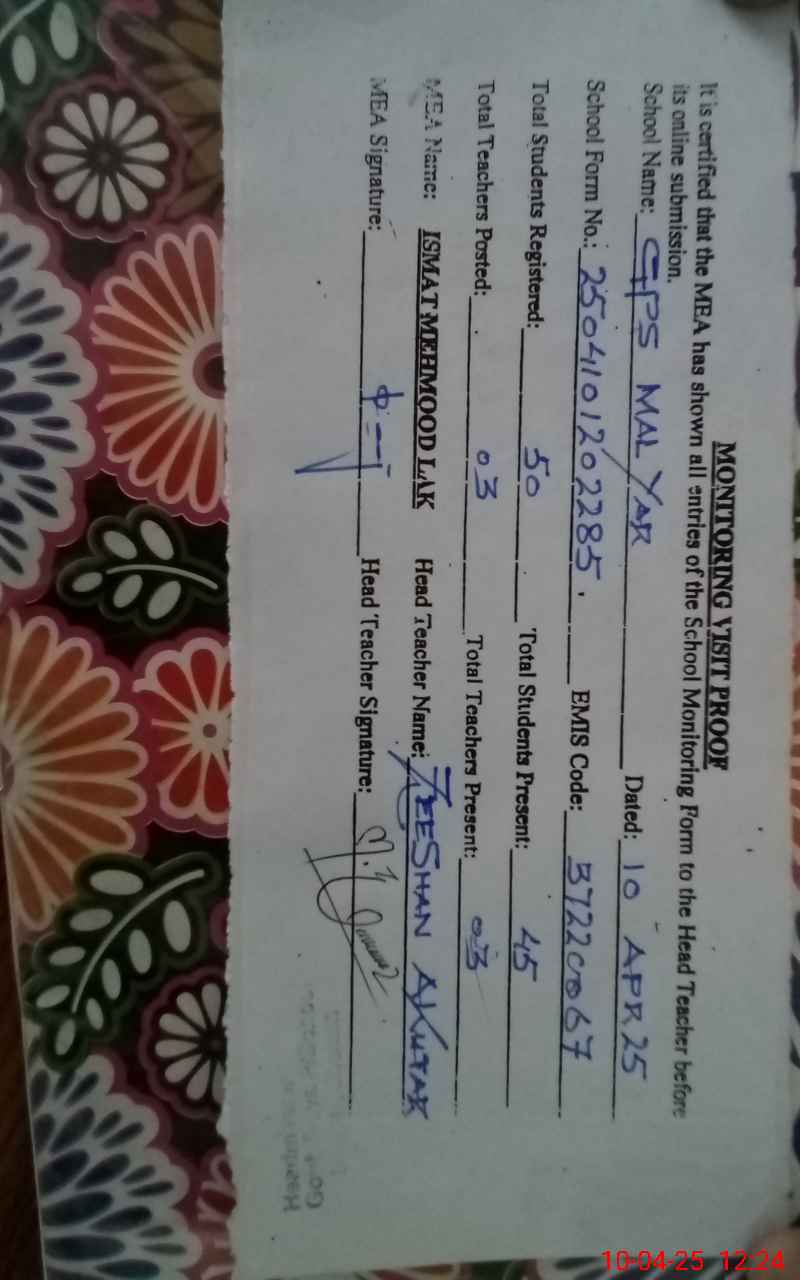 MONITORING VISIT PROOF
It is certified that the MEA has shown all entries of the School Monitoring Form to the Head Teacher before
its online submission.
School Name: GPS MAL YAR Dated: 10 APR 25
School Form No.: 2504101202285. EMIS Code:
Total Students Registered: 50 Total Students Present: 45
Total Teachers Posted: 03 Total Teachers Present: 03
MEA Name: ISMAT MEHMOOD LAK Head Teacher Name: ZEESHAN AKHTAR
MEA Signature: Head Teacher Signature:
10-04-25 12:24